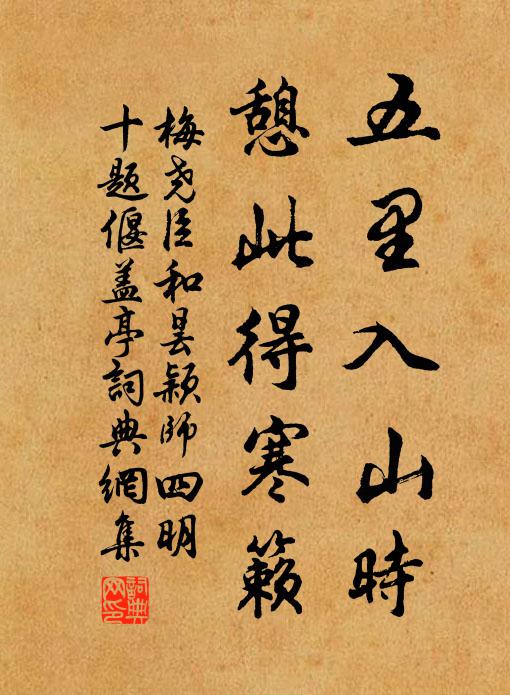 五里入山時
憩此得寒籟
梅尧臣和昙颖师四明
十题偃盖亭詞典網集
詞典
网印